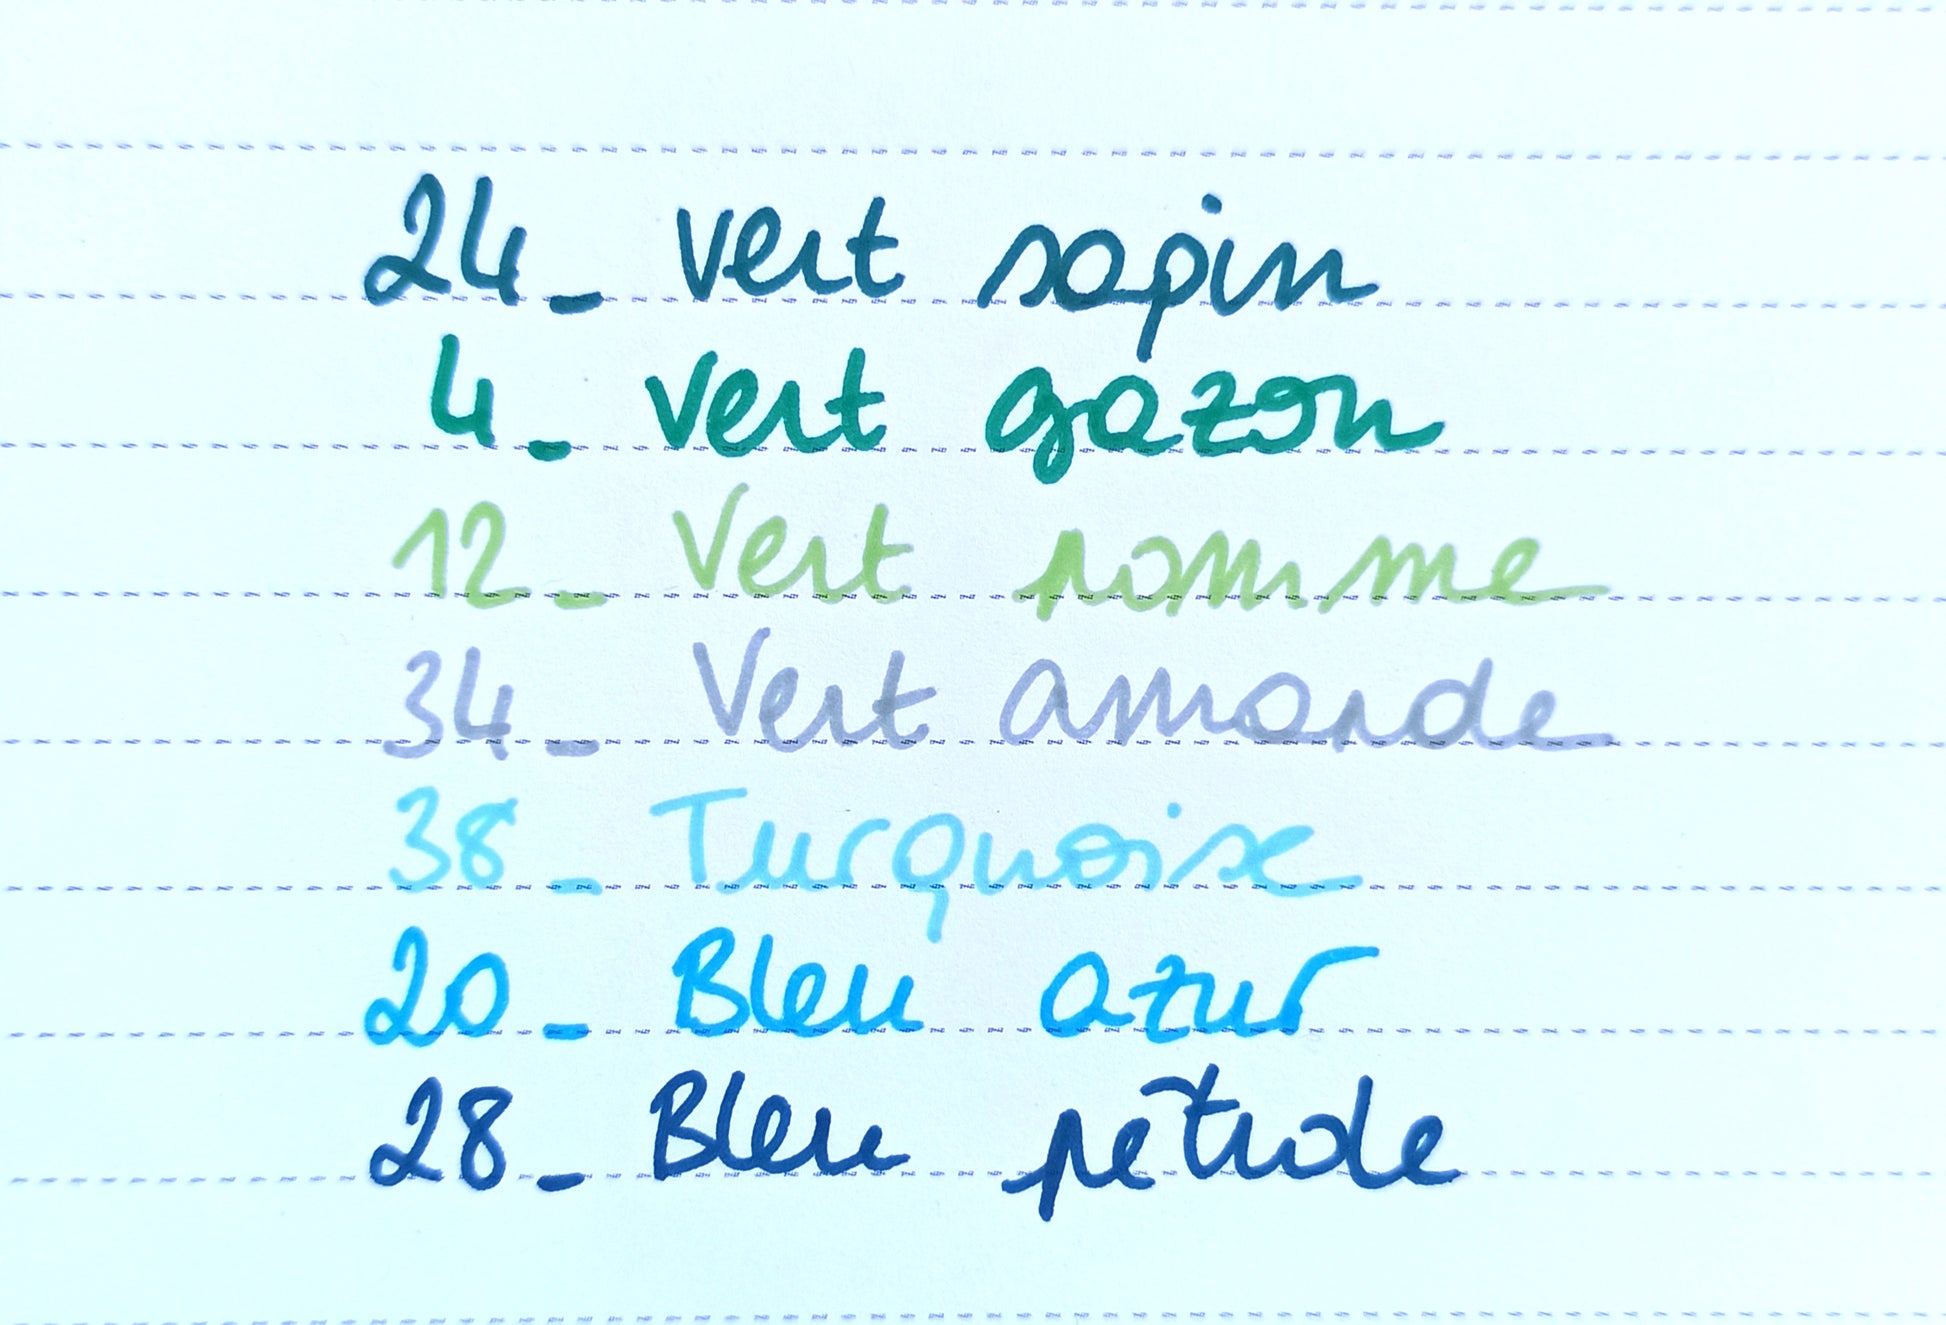 24_ vert sapin
4_ vert gazon
12_ Vert pomme
34_ Vert amande
38_ Turquoise
20_ Bleu azur
28_ Bleu pétrole